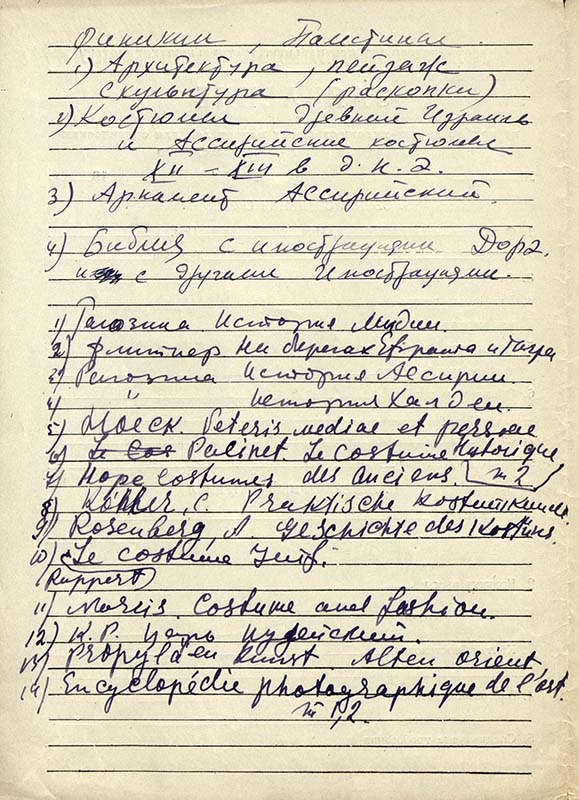 Финикии, Палестины.
1) Архитектура, пейзаж
скульптура (раскопки)
2) Костюмы древний Израиль
и Ассирийские костюмы
XII – XIII в д. н. э.
3) Арнамент Ассирийский.
4) Библия с илюстрациями Дорэ.
и с другими илюстрациями.
1) Рагозина История Мидии.
2) Флиттнер На берегах Евфрата и Тигра
3) Рагозина История Ассирии.
4) " История Халдеи.
5) Veteris mediae et persiae
6) Le Cos Le costume Historique
7) Hope costumes des anciens. т 2
8) Köhler, C. Praktische Kostümkunde
9) Rosenberg, A. Geschichte des Kostüms.
10) Le costume Juif.
(Ruppert)
11) Costume and fashion.
12) К.Р. Царь иудейский.
13) Propyläen Kunst Alten orient
14) Encyclopédie photographique de l'art.
т 1,2.